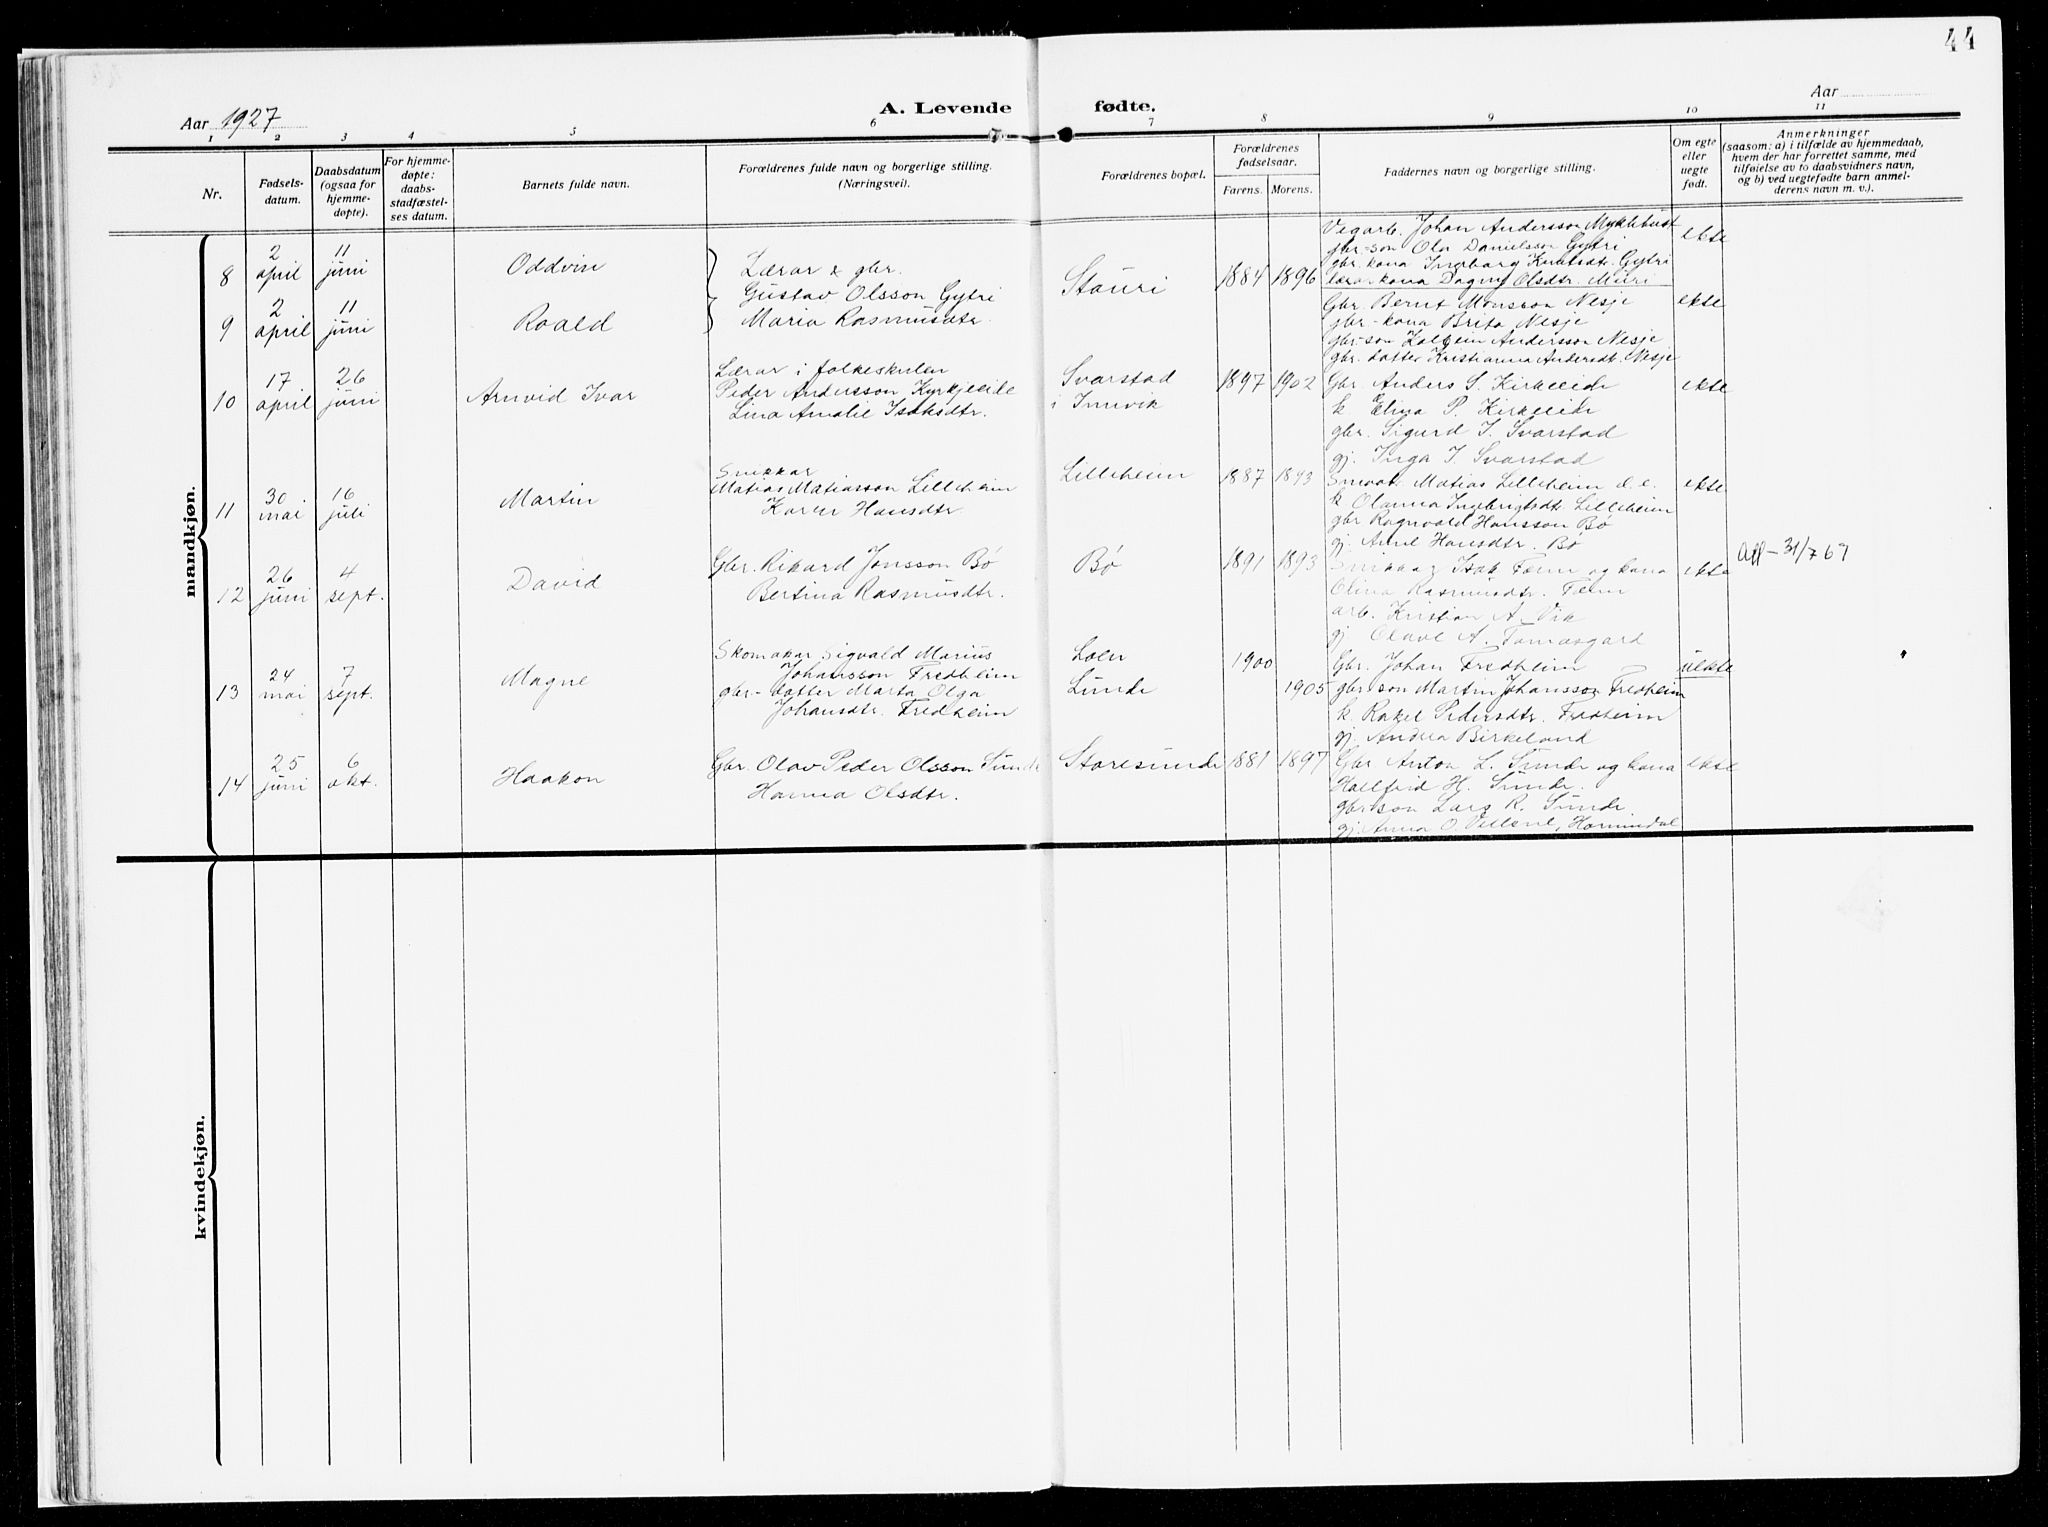 44
Aar 1927
A. Levende fødte.
Aar
1 2 3 4 5 6 7 8 9 10 11
Nr.
Fødsels-
datum.
Daabsdatum
(ogsaa for
hjemme-
døpte).
For hjemme-
døpte:
daabs-
stadfæstel-
ses datum.
Barnets fulde navn.
Forældrenes fulde navn og borgerlige stilling.
(Næringsvei).
Forældrenes bopæl.
Forældrenes
fødselsaar.
Farens. Morens.
Faddernes navn og borgerlige stilling.
Om egte
eller
uegte
født.
Anmerkninger
(saasom: a) i tilfælde av hjemmedaab,
hvem der har forrettet samme, med
tilføielse av to daabsvidners navn,
og b) ved uegtefødte barn anmel-
derens navn m. v.).
mandkjøn.
8
2
april
11
juni
Oddvin
Lærar & gbr.
Gustav Olsson Gytri
Maria Rasmusdtr.
Stauri
1884 1896
Vegarb. Johan Andersson Myklebust
gbr-son Ola Danielsson Gytri
gbr. kona Ingborg Knutsdtr. Gytri
lærarkona Dagny Olsdtr. Muri
ekte
9
2
april
11
juni
Roald
Gbr. Bernt Monsson Nesje
gbr-kona Brita Nesje
gbr-son Kolbein Andersson Nesje
gbr. datter Kristianna Andersdt. Nesje
ekte
10
17
april
26
juni
Arnvid Ivar
Lærar i folkeskulen
Peder Andersson Kyrkjeeide
Lina Amalie Isaksdtr.
Svarstad
i Innvik
1897 1902
Gbr. Anders S. Kirkeeide
k. Elina P. Kirkeeide
gbr. Sigurd I. Svarstad
gj. Inga I. Svarstad
ekte
11
30
mai
16
juli
Martin
Snikkar
Matias Matiasson Lilleheim
Karen Hansdtr
Lilleheim
1887 1893
Matias Lilleheim d. e.
k. Olanna Ingebrigtsdtr Lilleheim
gbr Ragnvald Hansson Bø
gj. Hansdtr. Bø
ekte
12
26
juni
4
sept.
David
Gbr. Rikard Jonsson Bø
Bertina Rasmusdtr.
Bø
1891 1893
Snikkar Isak Tenn og kona
Olina Rasmusdtr. Tenn
arb. Kristian A. Vik
gj. Olave A. Tomasgard
ekte
31/7 67
13
24
mai
7
sept.
Magne
Skomakar Sigvald Marius
Johansson Fredheim
gbr-datter Marta Olga
Johansdtr. Fredheim
Loen
Lunde
1900
1905
Gbr. Johan Fredheim
gbr son Martin Johansson Fredheim
k. Rakel Pedersdtr. Fredheim
gj. Andrea Birkeland
uekte
14
25
juni
6
okt.
Haakon
Gbr. Olav Peder Olsson Sunde
Hanna Olsdtr.
Storesunde
1881 1897
Gbr Anton L. Sunde og kona
Hallfrid H. Sunde.
gbr son Lars R. Sunde
gj. Anna O. Hornindal
ekte
kvindekjøn.